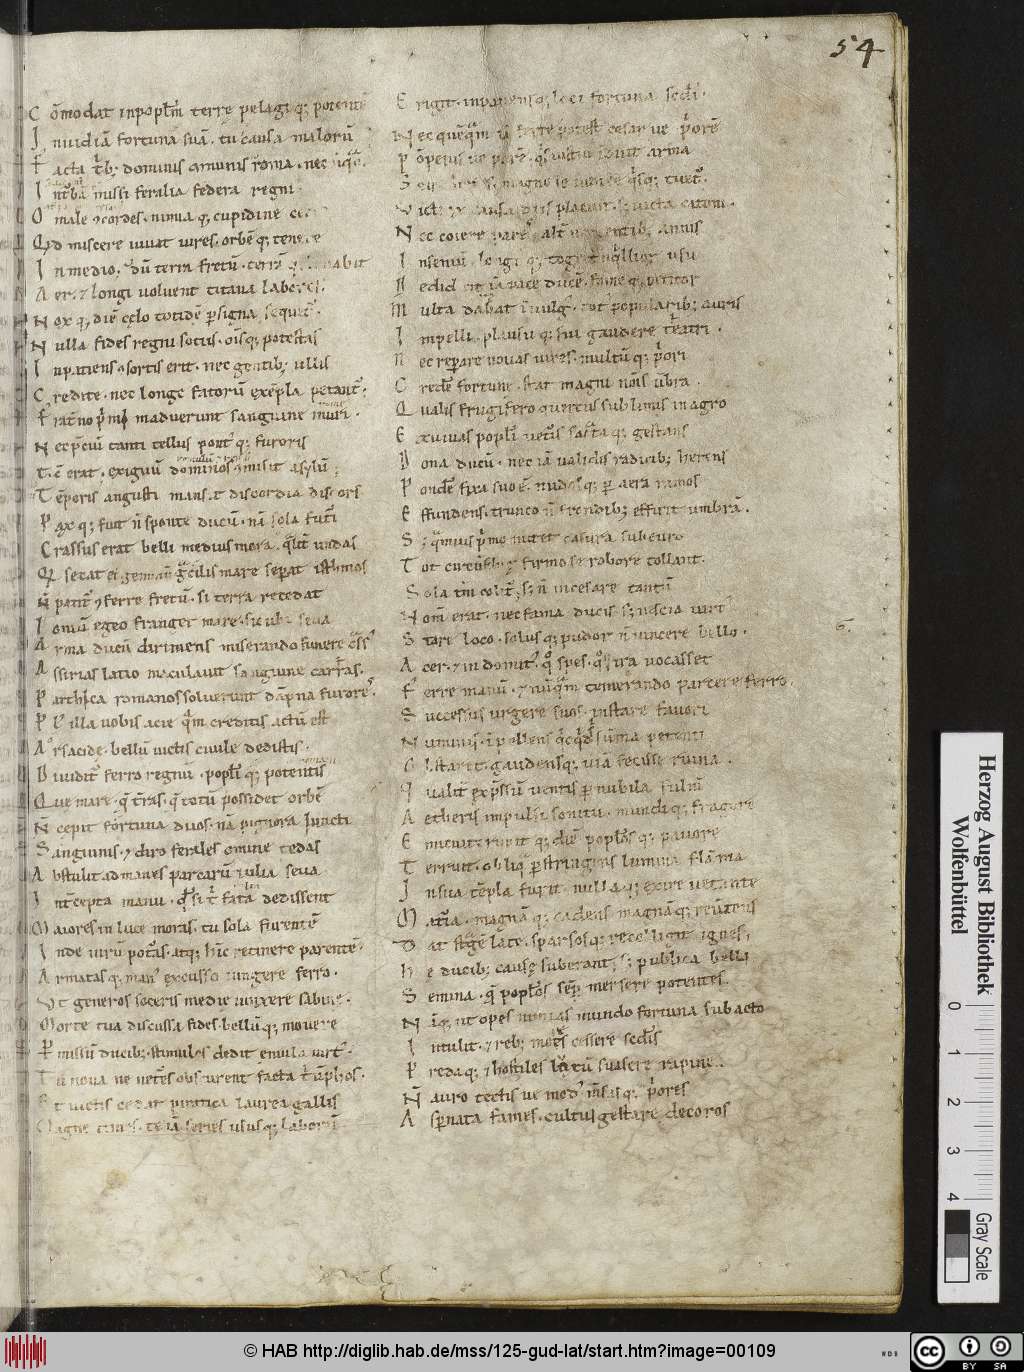 54
C ōmodat inpopl̄m terre pelagi q; potentē
I nuidiā fortuna suā. tu causa maloruͫ
F acta t̄b; dominis cōmunis roma. nec
I nt̄bā missi feralia federa regni
O male ɔcordes. nimia q; cupidine
Q̇d miscere iuuat uires. orbē q; tenere
I n medio; dū terra fretū. terrā
A er. ⁊ longi uoluent titana labores
N ox q; diē cęlo totidē p signa sequet̄
N ulla fides regni sociis. oīsq; potestas
I npatiens ɔsortis erit. nec gentib; ullis
C redite. nec longe fatorū exēpla petant̄.
F rat̄no p̄mi maduerunt sanguine muri.
N ec p̄ciū tanti tellus pont̄ q; furoris
T. c̄ erat. exiguū dominos ɔmisit asylū
T ēporis angusti mansit discordia discors
P ax q; fuit n̄ sponte ducū. nā sola futi
C rassus erat belli medius mora. q̄lit̄ undas
Q secat et geminū ḡcilis mare separat isthmos
N̄ patit̄ ɔferre fretū. si terra recedat
I oniū egeo franget mare. sic ubi seua
A rma ducū dirimens miserando funere c̄ss'
A ssirias latio maculauit sanguine carras.
P arthica romanos soluerunt dāpna furores
P l' illa uobis acie q̄m creditis actū est
A rsacide. bellū uictis ciuile dedistis.
D iuidit̄ ferro regnū. popl'i q; potentis
Q ue mare. q̄ t̄ras. q̄ totū possidet orbē
N̄ cepit fortuna duos. nā pignora iuncti
S anguinis. ⁊ diro ferales omine tedas
A bstulit ad manes parcarū iulia seua
I nt̄cepta manu. qd̄ si t̄ fata dedissent
M aiores in luce moras. tu sola furentē
I nde uirū pot̄as. atq; hīc retinere parentē.
A rmatasq; man' excusso iungere ferro.
U t generos soceris medie iunxere sabine.
M orte tua discussa fides. bellūq; mouere
P̄ missū ducib; stimulos dedit emula uirt'.
T u noua ne uet̄es obscurent facta t̄ūphos.
E t uictis cedat piratica laurea gallis
M agne times. te iā series ususq; laborū
E rigit. inpatiensq; loci fortuna scd̄i.
N ec quēq̄m iā ferre potest cesar ue p̄orē
P ōpeius ue parē. q̄s iustius induit arma
S cire magno se iudice q̄sq; tuet̄.
V ict causa diis placuit. s; uicta catoni.
N ec coiere pares alt̄ uergentib; annis
I nseniū. longo q; toge t̄nq̄llior usu
D edidicit iā pace ducē. fame q; petitor
M ulta dare ī uulg'. tot' popularib; auris
I mpelli. plausu q; sui gaudere theatri.
N ec reparare nouas uires. multū q; p̄ori
C redēe fortune. stat magni nōis ūbra.
Q ualis frugifero quercus sublimis in agro
E xuuias popl'i uet̄is sacrata q; gestans
D ona ducū. nec iā ualidis radicib; herens
P ondēe fixa suo ē. nudosq; p aera ramos
E ffundens. trunco n̄ frondib; efficit umbrā.
S ; q̄muis p̄mo nutet casura sub euro
T ot circū silue firmo se robore tollant.
S ola tm̄ colit̄. s; n̄ in cesare tantū
N om̄ erat. nec fama ducis. s; nescia uirt'
S tare loco. solusq; pudor n̄ uincere bello.
A cer. ⁊ indomit'. q̊ spes. q̊ ira uocasset
F erre manū. ⁊ nūq̄m temerando parcere ferro.
S uccessus urgere suos. instare fauori
N uminis. īpellens q̄cq̄d s' sūma petenti
O bstaret. gaudensq; uiā fecisse ruina.
Q ualit̄ exp̄ssū uentis p nubila fulm̄
A etheris impulsi sonitu. mundi q; fragore
E micuit. rupit q; diē. popl'os q; pauore
T erruit. obliq̄ p̄stringens lumina flāma
I n sua tēpla furit. nulla q; exire uetante
M at̄ia. magnā q; cadens magnāq; reūtens
D at stragē late. sparsosq; recolligit ignes.
H e ducib; causę suberant. s; publica belli
S emina. q̄ popl'os sēp mersere potentes.
N āq; ut opes nimias mundo fortuna subacto
I ntulit. ⁊ reb; mores cessere scd̄is
P redaq; ⁊ hostiles luxū suasere rapine.
N̄ auro tectis ue mod' m̄sisq; p̄ores
A spernata fames. cultus gestare decoros
Herzog August Bibliothek
Wolfenbüttel
0 1 2 3 4
Gray Scale
© HAB http://diglib.hab.de/mss/125-gud-lat/start.htm?image=00109
cc BY SA